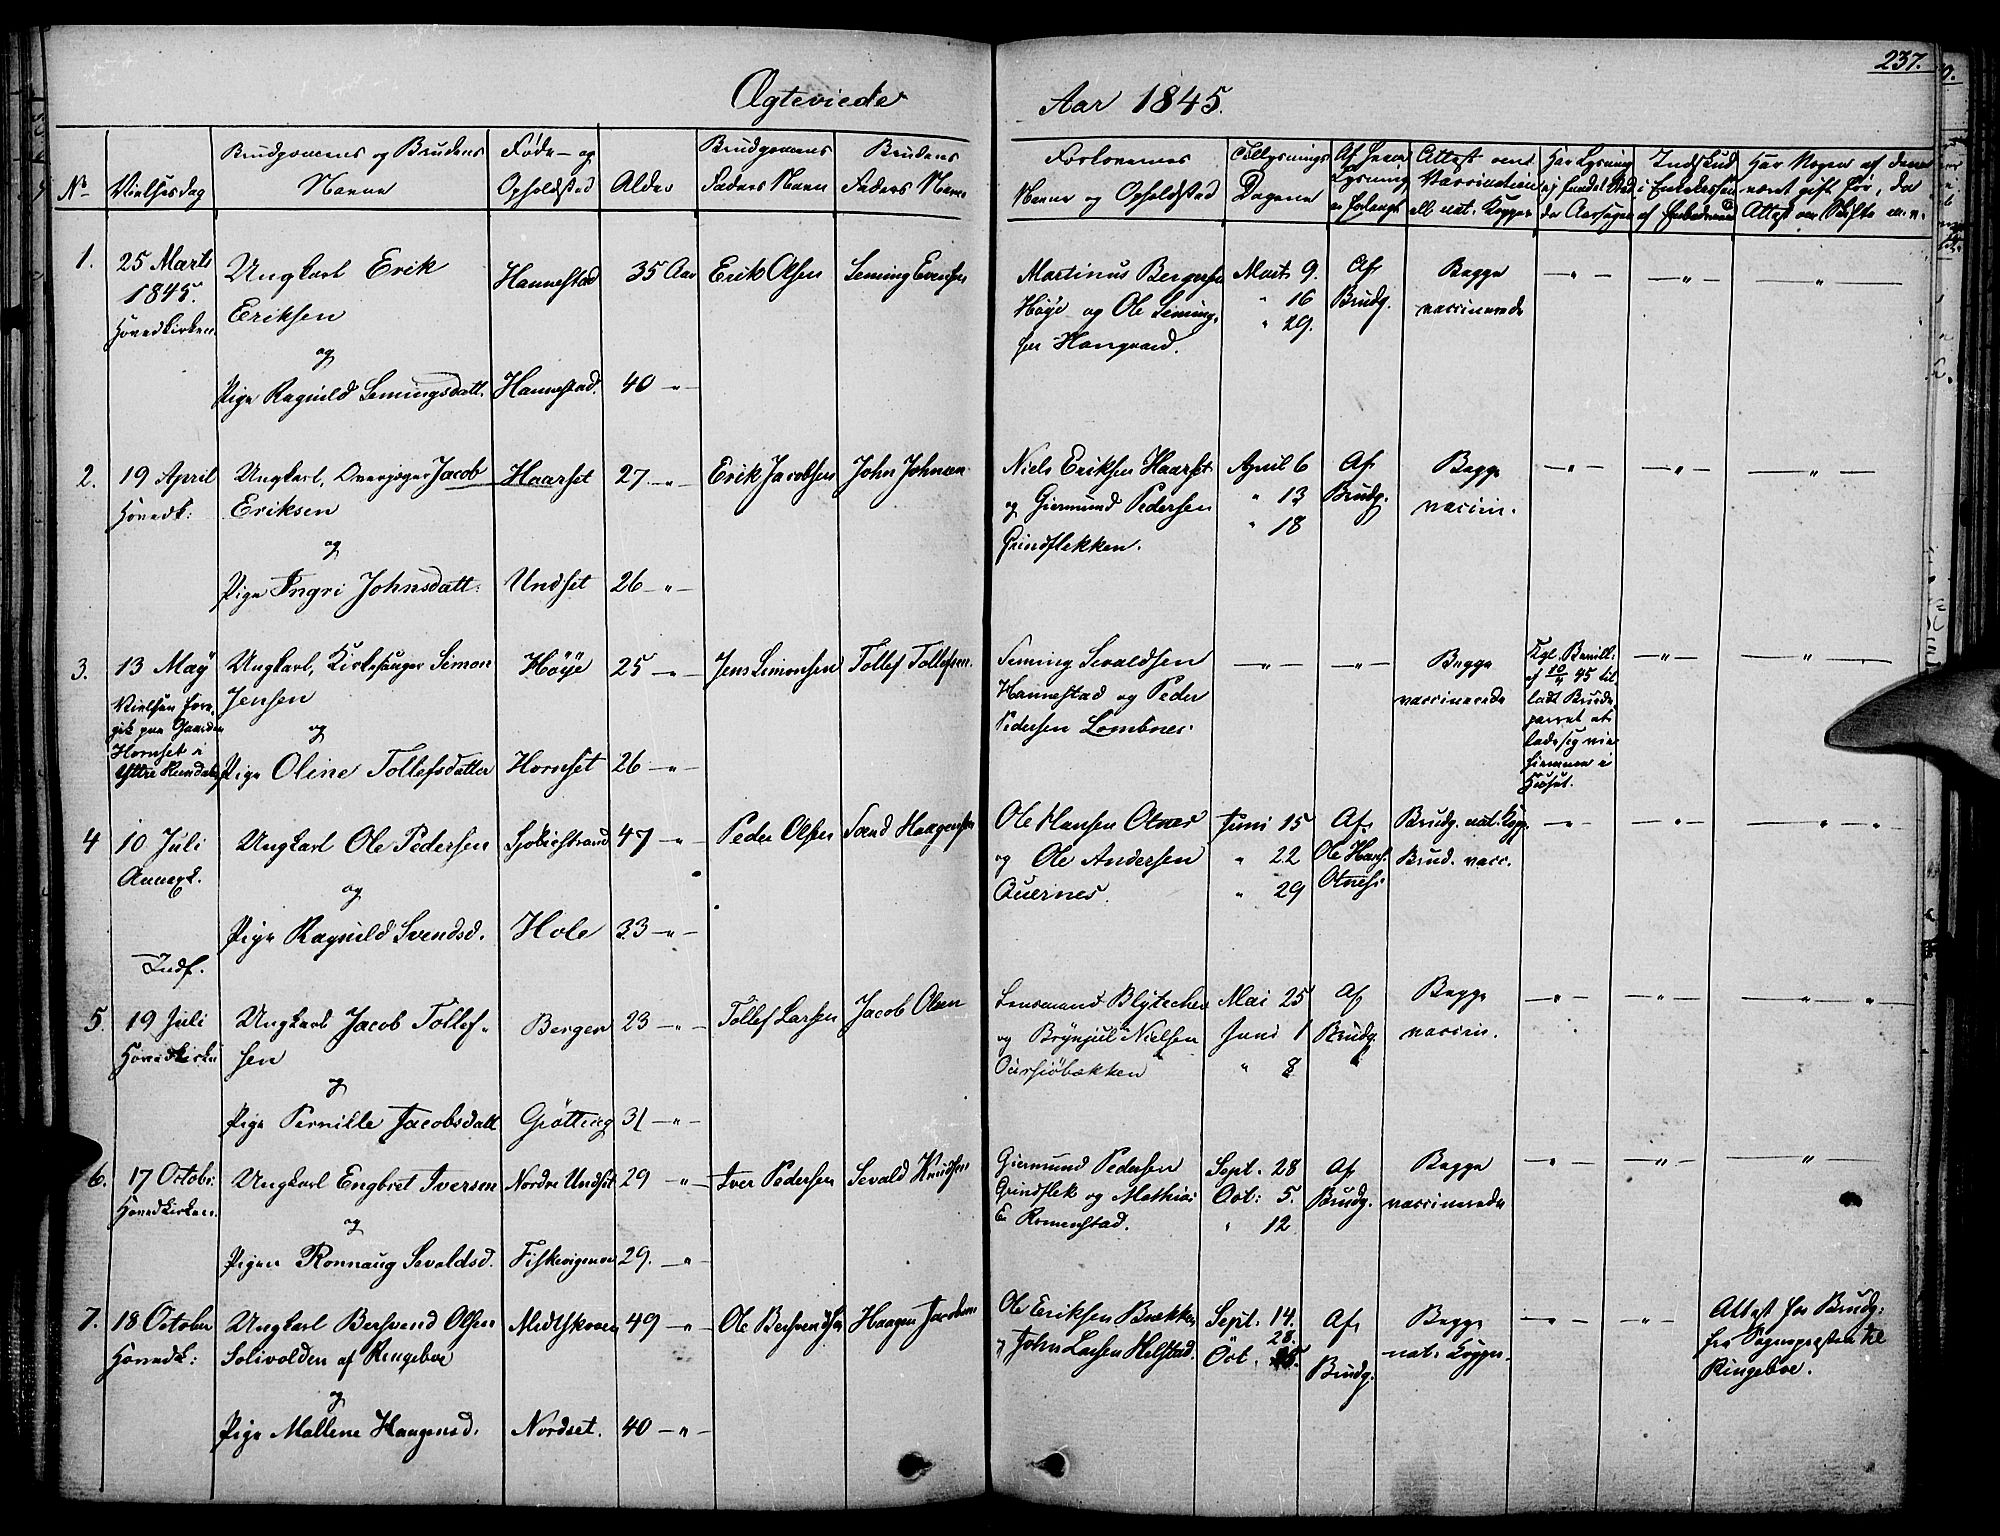 237.
Ægteviede
Aar 1845.
No
Vielsesdag
Brudgommens og Brudens
Navne
Føde- og
Opholdsted
Alder
Brudgommens
Faders Navn
Brudens
Faders Navn
Forlovernes
Navne og Opholdsted
Tillysnings
Dagene
Af hvem
Lysning
er forlangt
Attest om
Vaccination
ell. nat. Kopper
Har Lysning
ej fundet Sted,
da Aarsagen
Indskud
i Enkekassen
af Embedsmænd
Har Nogen af dem
været gift før, da
Attest om Skifte m. v.
1.
25 Marts
1845.
Hovedkirken.
Ungkarl Erik
Eriksen
og
Pige Ragnild Semingsdatt.
Hannestad
Hannestad.
35 Aar
40 - " -
Erik Olsen
Seming Evensen
Martinus Bergersen
Høye og Ole Seming-
sen Haugaard.
Mart. 9.
" 16
" 29.
Af
Brudg.
Begge
vaccinerede
- " -
- " -
- " -
2.
19 April
Hovedk:
Ungkarl, Overjæger Jacob
Eriksen
og
Pige Ingri Johnsdatt:
Haarset
Undset
27 - " -
26 - " -
Erik Jacobsen
John Johnsen
Niels Eriksen Haarset
og Giermund Pedersen
Grindflekken.
April 6
" 13
" 18
Af
Brudg.
Begge
vaccin.
- " -
- " -
- " -
3.
13 May
Vielsen fore-
gik paa Gaarden
Hornset i
Yttre Rendalen
Ungkarl, Kirkesanger Simon
Jensen
og
Pige Oline Tollefsdatter
Høye
Hornset
25 - " -
26 - " -
Jens Simonsen
Tollef Tollefsen.
Seming Sevaldsen
Hannestad og Peder
Pedersen Lombnes.
- " -
- " -
Begge
vaccinerede
Kgl. Bevill.
af 10/4 45 til
ladt Brude
parret at
lade sig vie
hiemme i
Huset.
- " -
- " -
4
10 Juli
Annexk.
Ungkarl Ole Pedersen
og
Pige Ragnild Svendsd.
Sjøliestrand
Hole
47 - " -
33 - " -
Peder Olsen
Svend Haagensen
Ole Hansen Otnes
og Ole Andersen
Qvernes.
Juni 15
" 22
" 29
Af
Ole Hans.
Otnes.
Brudg. nat. Kopp.
Brud. vacc.
- " -
- " -
- " -
Indf.
5
19 Juli
Hovedkirken
Ungkarl Jacob Tollef-
sen
og
Pige Pernille Jacobsdatt
Berger
Grøtting
23 - " -
31 - " -
Tollef Larsen
Jacob Olsen
Lensmand Blytecher
og Brynjul Nielsen
Oursiøbækken
Mai 25
Juni 1
" 8
Af
Brudg.
Begge
vaccin.
- " -
- " -
- " -
6.
17 Octobr.
Hovedkirken.
Ungkarl Engbret Iversen
og
Pigen Ronnaug Sevaldsd.
Nordre Undset
Fiskevigmoen
29 - " -
29. - " -
Iver Pedersen
Sevald Knudsen
Giermund Pedersen
Grindflek og Mathias
E. Romenstad.
Sept. 28
Oct: 5.
" 12
Af
Brudg.
Begge
vaccinerede
- " -
- " -
- " -
7.
18 October
Hovedk:
Ungkarl Bersvend Olsen
Solivolden af Ringeboe
og
Pige Mallene Haagensd.
Midtskoven
Nordset.
49 - " -
40 - " -
Ole Bersvendsen
Haagen Jacobsen
Ole Eriksen Bækken
og John Larsen Helstad.
Sept. 14.
28.
Oct. 5.
Af
Brudg.
Begge
nat. Kopper.
- " -
- " -
Attest for Brudg:
fra Sognepresten til
Ringeboe.